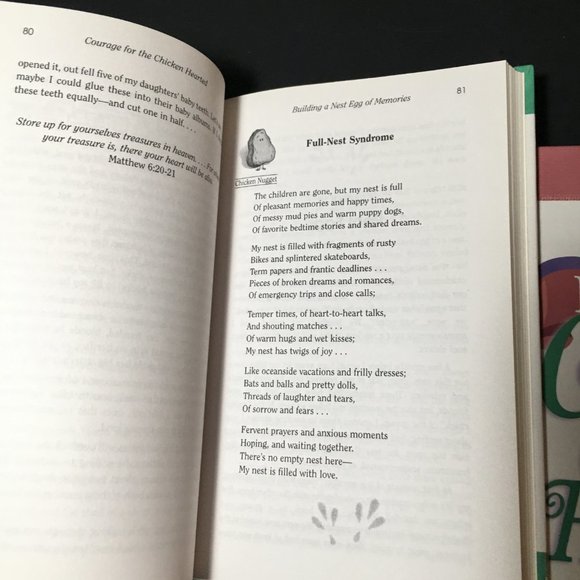 80
Courage for the Chicken Hearted
opened it, out fell five of my daughters' baby teeth.
maybe I could glue these into their baby albums.
these teeth equally—and cut one in half. . . .
Store up for yourselves treasures in heaven. . . . For
your treasure is, there your heart will be also.
Matthew 6:20-21
Building a Nest Egg of Memories
81
Full-Nest Syndrome
Chicken Nugget
The children are gone, but my nest is full
Of pleasant memories and happy times,
Of messy mud pies and warm puppy dogs,
Of favorite bedtime stories and shared dreams.
My nest is filled with fragments of rusty
Bikes and splintered skateboards,
Term papers and frantic deadlines . . .
Pieces of broken dreams and romances,
Of emergency trips and close calls;
Temper times, of heart-to-heart talks,
And shouting matches . . .
Of warm hugs and wet kisses;
My nest has twigs of joy . . .
Like oceanside vacations and frilly dresses;
Bats and balls and pretty dolls,
Threads of laughter and tears,
Of sorrow and fears . . .
Fervent prayers and anxious moments
Hoping, and waiting together.
There's no empty nest here—
My nest is filled with love.